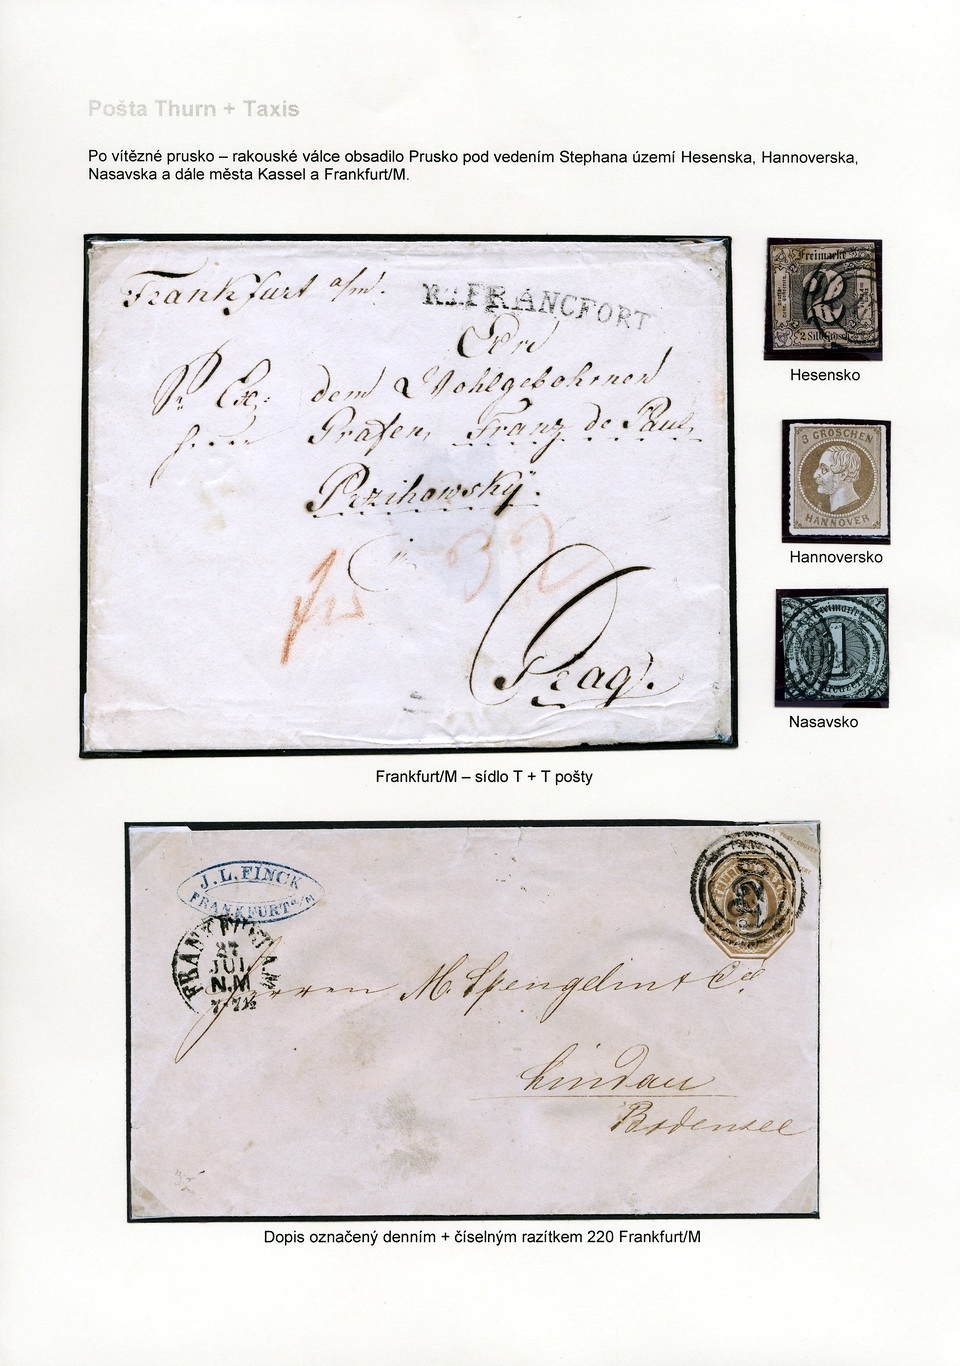 Pošta Thurn + Taxis
Po vítězné prusko – rakouské válce obsadilo Prusko pod vedením Stephana území Hesenska, Hannoverska,
Nasavska a dále města Kassel a Frankfurt/M.
Frankfurt a/m.
R.3.FRANCFORT
dem Wohlgebohrnen
Grafen, Franz de Paul,
Przihowsky.
32
Prag.
Freimarke
2 Silb Grosch
Hesensko
3 GROSCHEN
HANNOVER
Hannoversko
Freimarke
1
Kreuzer
Nasavsko
Frankfurt/M – sídlo T + T pošty
J. L. FINCK
FRANKFURT a/M
FRANKFURT A.M.
27
JUL
N.M
7-7½
220
Herren M. Spengelin & Co.
Lindau
Bodensee
Dopis označený denním + číselným razítkem 220 Frankfurt/M